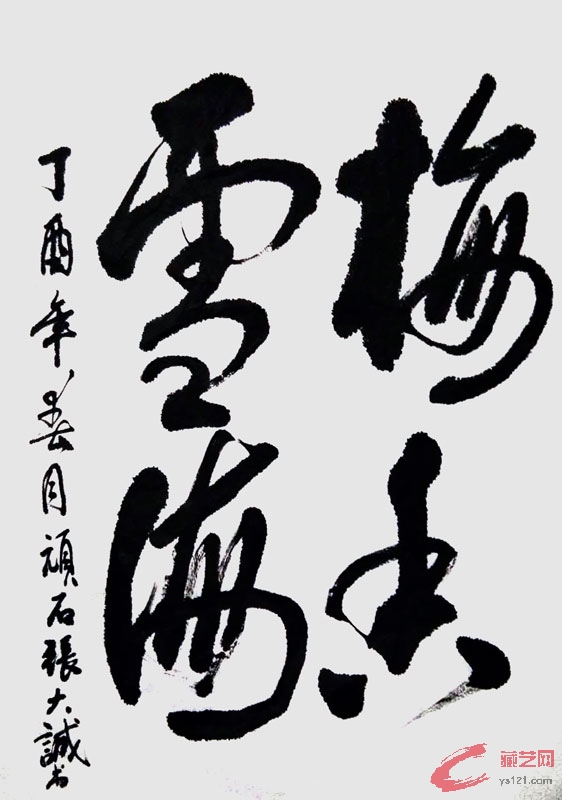 梅香
雪海
丁酉年春月頑石張大誠書
藏艺网
ys121.com